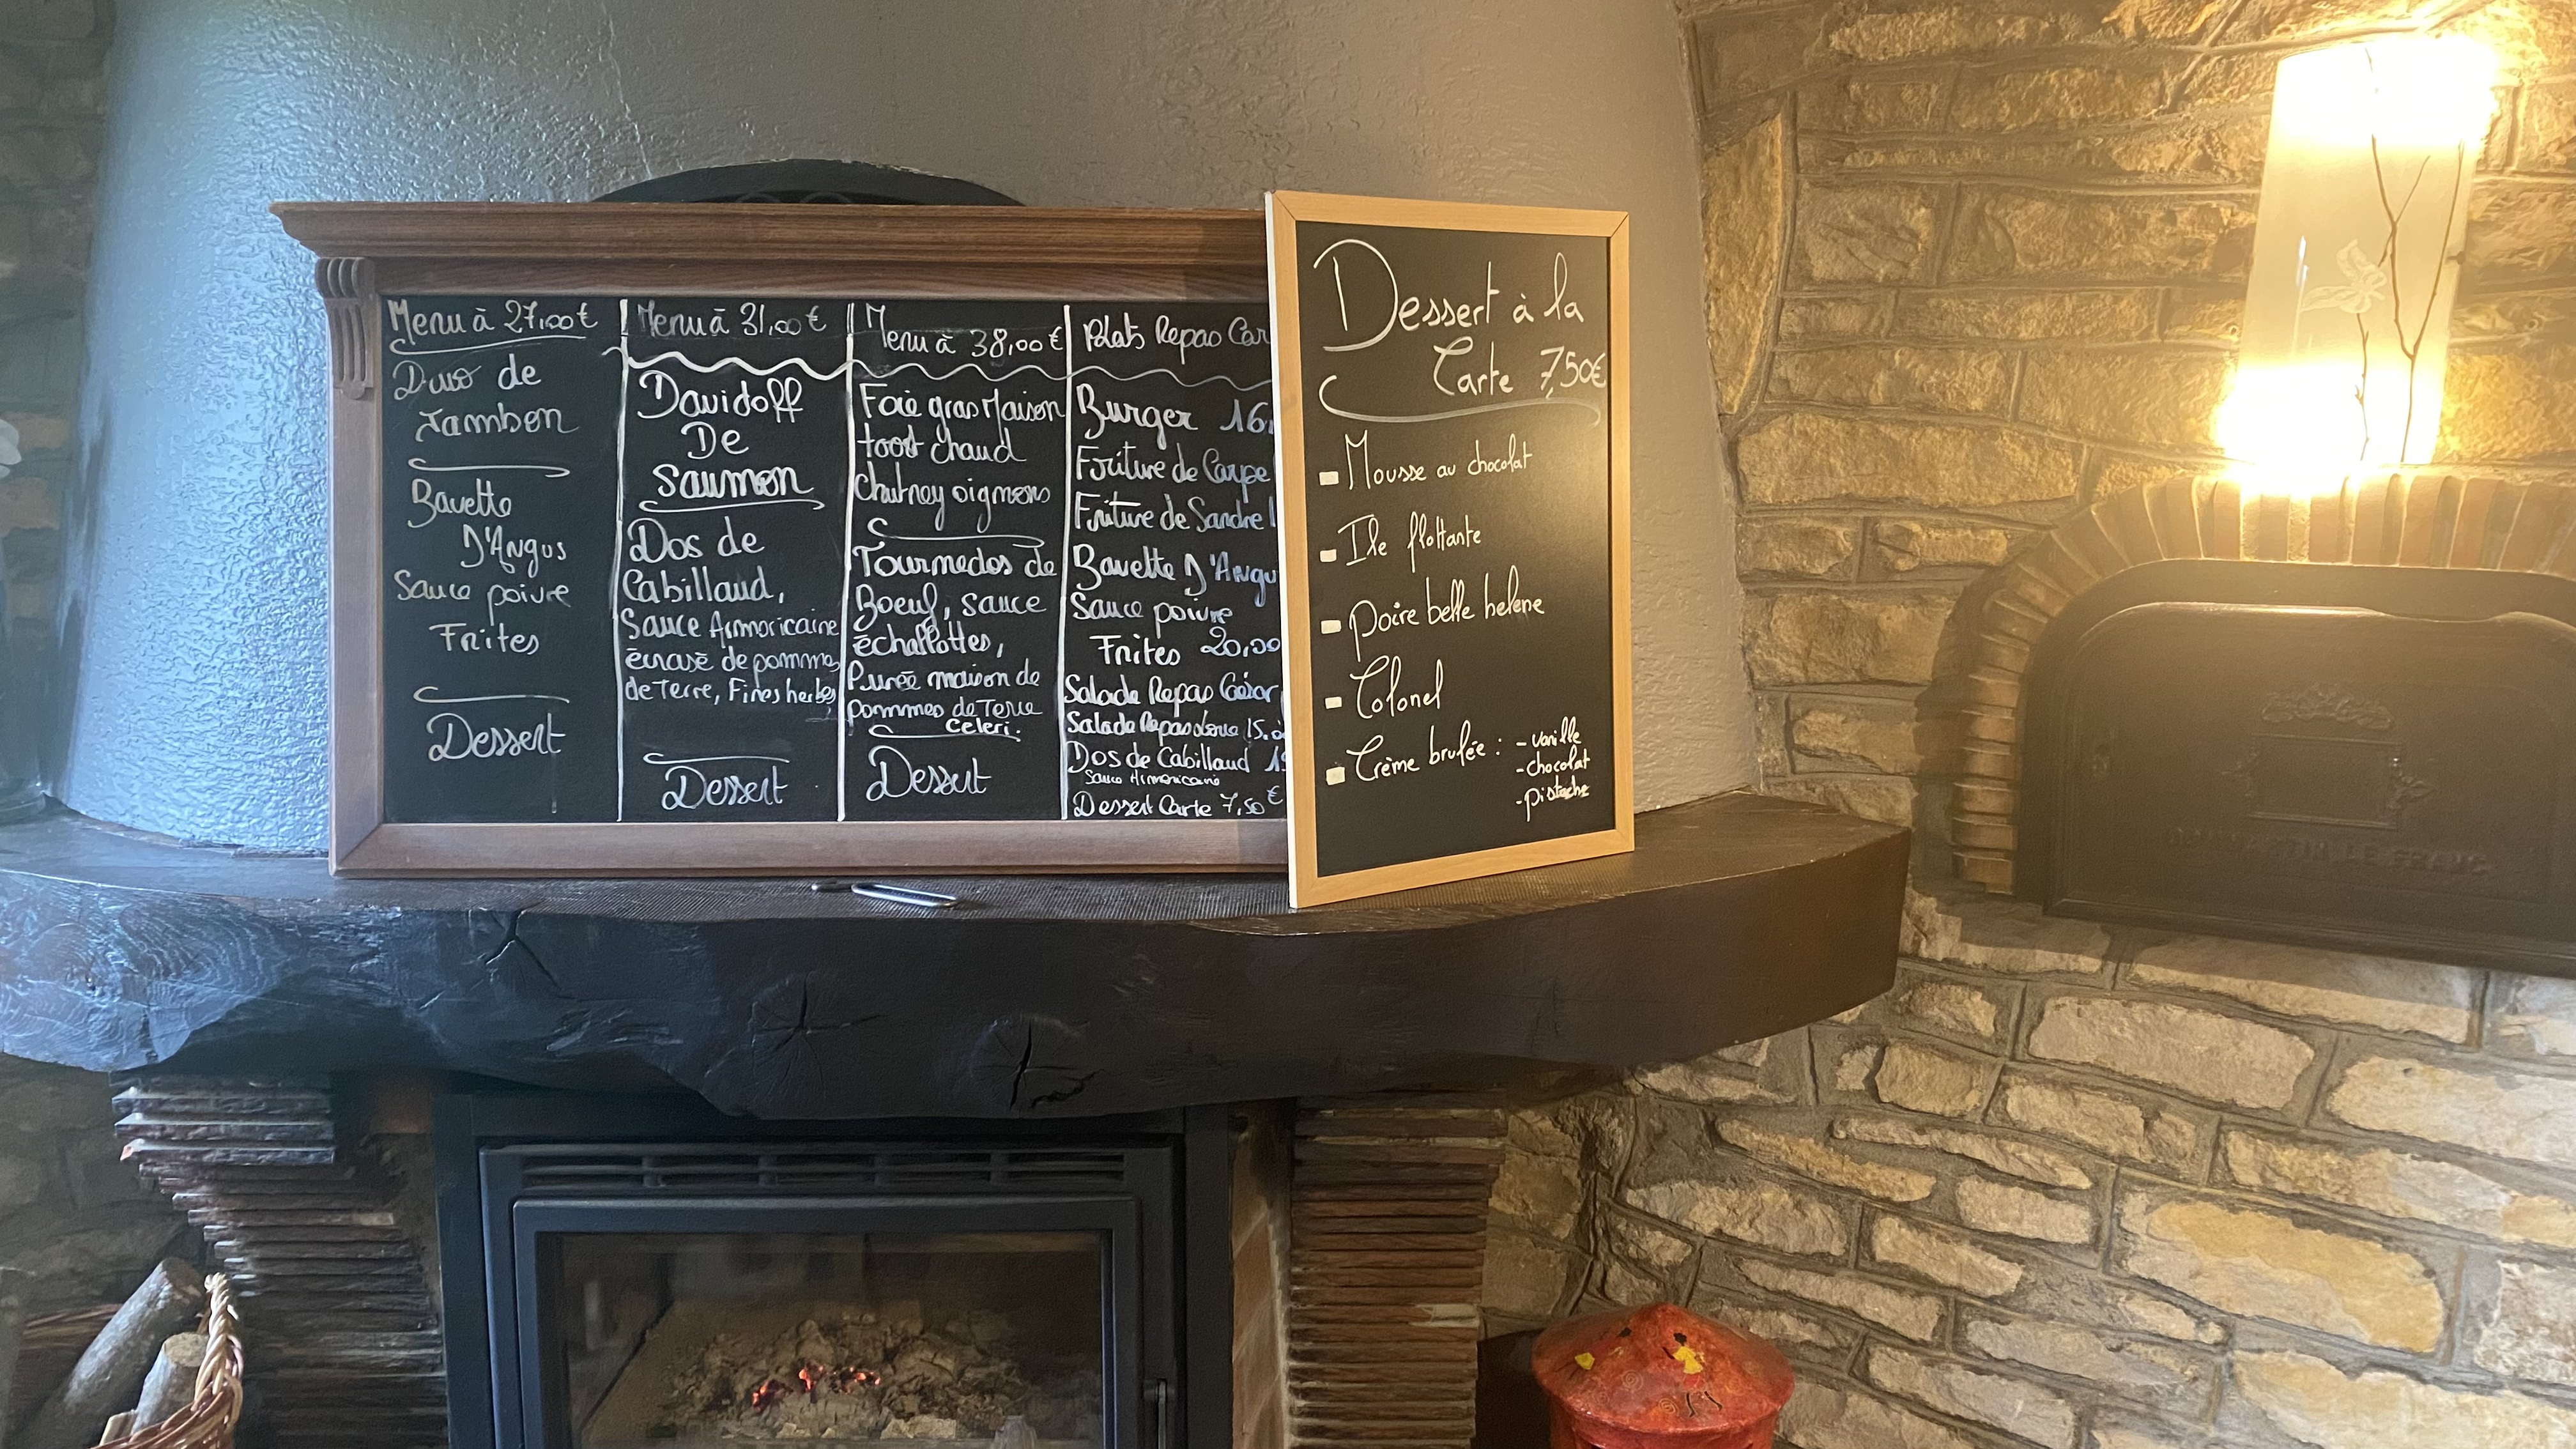 Menu à 27,00€
Duo de
Jambon
Bavette
D'Angus
Sauce poivre
Frites
Dessert
Menu à 31,00€
Davidoff
De
Saumon
Dos de
Cabillaud,
Sauce Armoricaine
écrasé de pommes
de Terre, Fines herbes
Dessert
Menu à 38,00€
Foie gras Maison
toast chaud
chutney oignons
Tournedos de
Boeuf, sauce
échallottes,
Purée maison de
pommes de Terre
Celeri.
Dessert
Plats Repas Car
Burger 16,
Friture de Carpe
Friture de Sandre 1
Bavette D'Angu
Sauce poivre
Frites 20,00
Salade Repas César
Salade Repas 15.0
Dos de Cabillaud 1
Sauce Armoricaine
Dessert Carte 7,50€
Dessert à la
Carte 7,50€
- Mousse au chocolat
- Ile flottante
- poire belle helene
- Colonel
- Crème brulée : - vanille
- chocolat
- pistache